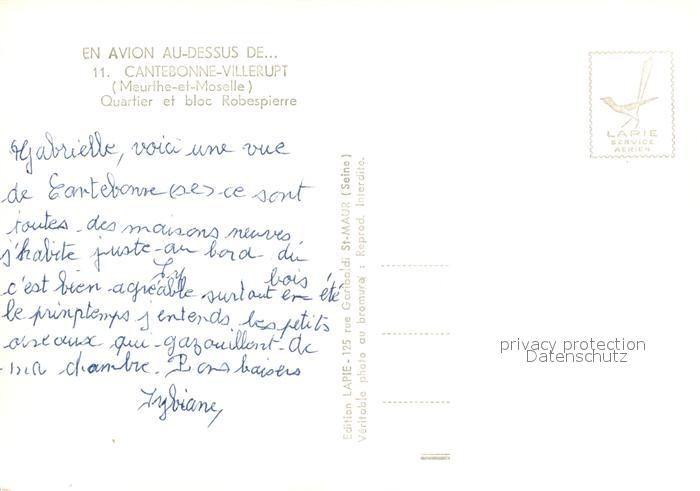 EN AVION AU-DESSUS DE...
11. CANTEBONNE-VILLERUPT
(Meurthe-et-Moselle)
Quartier et bloc Robespierre
Gabrielle, voici une vue
de Cantebonne (se) ce sont
toutes des maisons neuves
j'habite juste au bord du
bois
c'est bien agréable surtout en été
le prinptemps j'entends les petits
oiseaux qui gazouillent de
ma chambre. Bons baisers
Sylviane,
Edition LAPIE - 125 rue Garibaldi St-MAUR (Seine)
Véritable photo au bromure : Reprod. Interdite.
LAPIE
SERVICE
AERIEN
privacy protection
Datenschutz